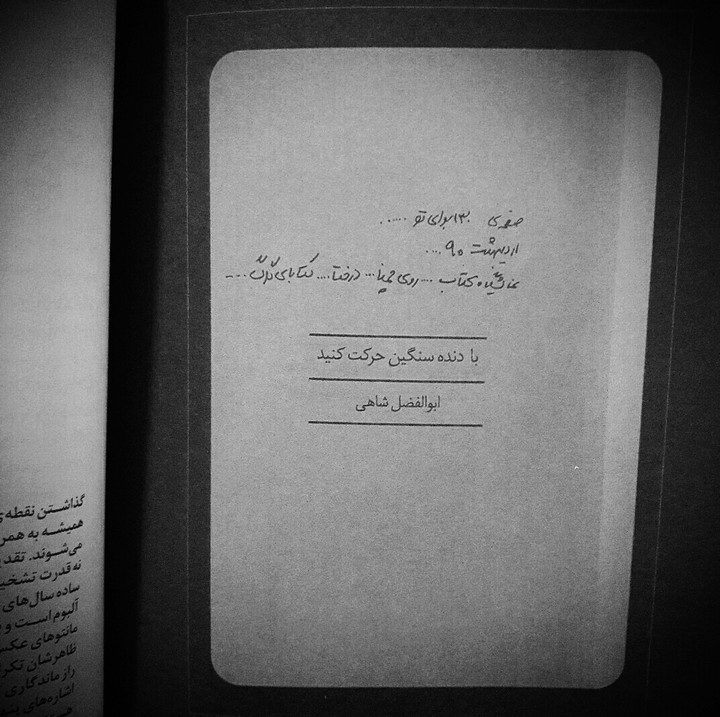 صفحه‌ی ۱۳۰ برای تو .....
اردیبهشت ۹۰ ....
نمایشگاه کتاب .... روی چمنا ... درختا .... کتابای گرگ ....
با دنده سنگین حرکت کنید
ابوالفضل شاهی
گذاشتن نقطه‌ی
همیشه به همر
می‌شوند. تقد
نه قدرت تشخی
ساده سال‌های
آلبوم است و
مانتوهای عکس
ظاهرشان تکرا
راز ماندگاری
اشاره‌های